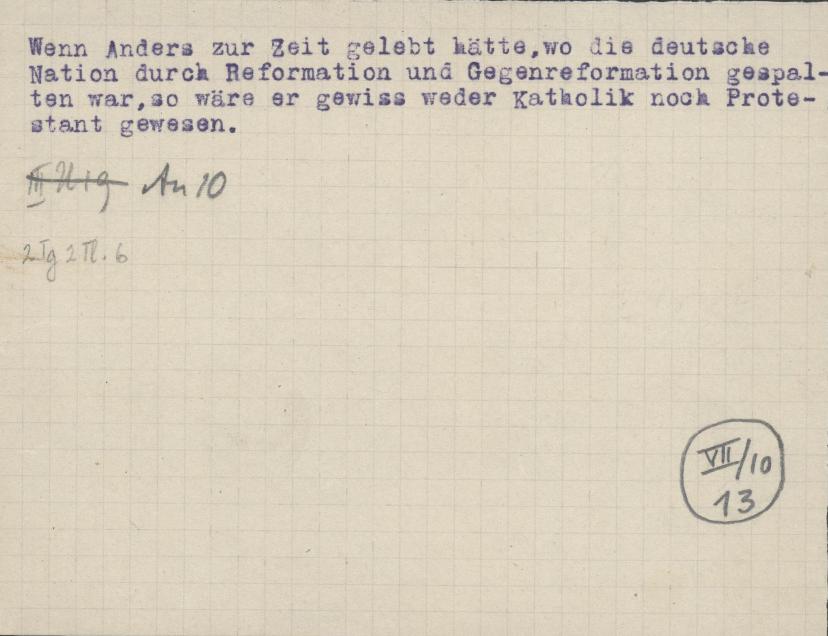 Wenn Anders zur Zeit gelebt hätte,wo die deutsche
Nation durch Reformation und Gegenreformation gespal-
ten war,so wäre er gewiss weder Katholik noch Prote-
stant gewesen.
III An 10
2 Tg 2 Tl. 6
VII/10
13